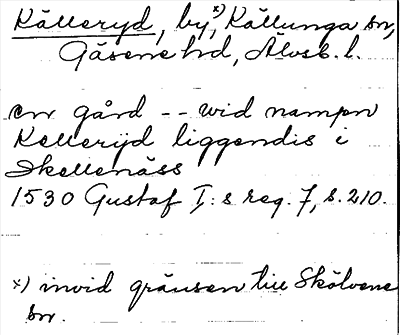 Källeryd, by,x) Källunga sn,
Gäsene hd, Älvsb. l.
en gård -- wid nampn
Kelleryd liggendis i
Skellenäss
1530 Gustaf I:s reg. 7, s. 210.
x) invid gränsen till Skölvene
sn.